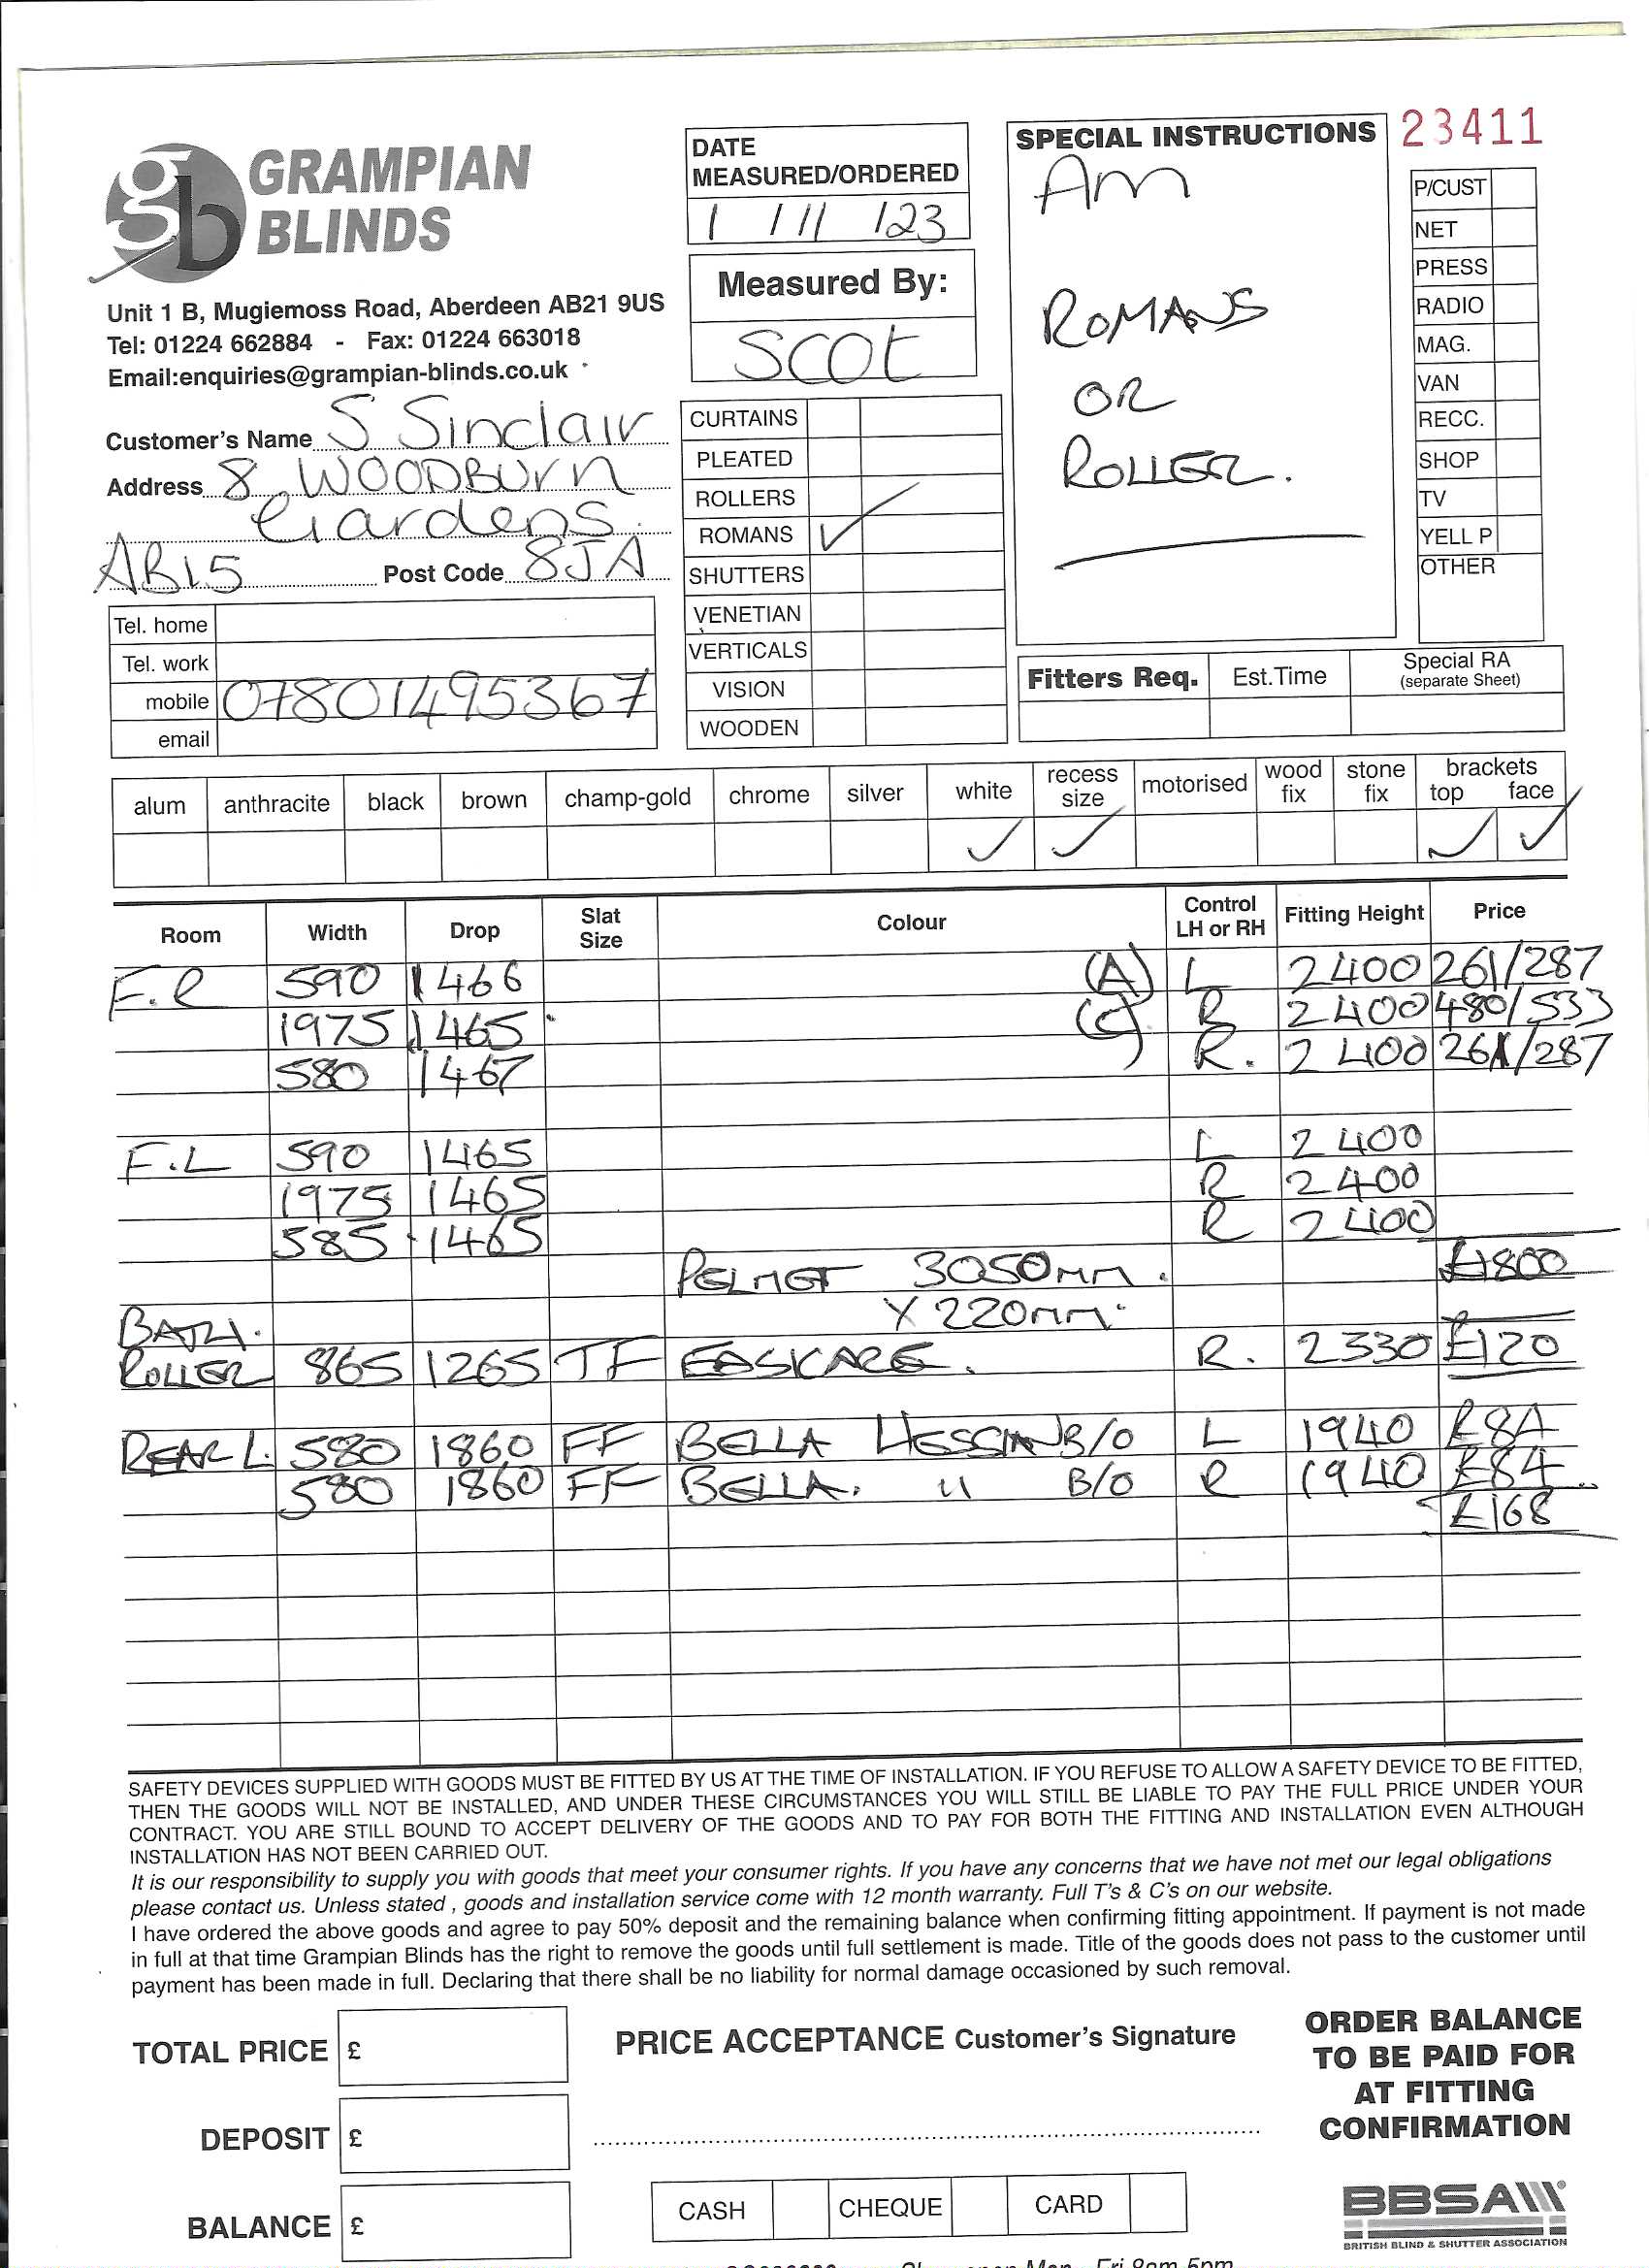 23411
GRAMPIAN
BLINDS
Unit 1 B, Mugiemoss Road, Aberdeen AB21 9US
Tel: 01224 662884 - Fax: 01224 663018
Email:enquiries@grampian-blinds.co.uk
DATE
MEASURED/ORDERED
1 / 11 / 23
Measured By:
SCOT
SPECIAL INSTRUCTIONS
Am
ROMANS
OR
ROLLER.
P/CUST
NET
PRESS
RADIO
MAG.
VAN
RECC.
SHOP
TV
YELL P
OTHER
Customer's Name S Sinclair
Address 8 WOODBURN
Gardens
AB15 Post Code 8JA
Tel. home
Tel. work
mobile 07801495367
email
CURTAINS
PLEATED
ROLLERS
ROMANS ✓
SHUTTERS
VENETIAN
VERTICALS
VISION
WOODEN
Fitters Req. Est.Time Special RA
(separate Sheet)
alum anthracite black brown champ-gold chrome silver white recess size motorised wood fix stone fix brackets top face
✓ ✓ ✓ ✓
Room Width Drop Slat Size Colour Control LH or RH Fitting Height Price
F.R 590 1466 (A) L 2400 261/287
1975 1465 (C) R 2400 480/533
580 1467 R. 2400 261/287
F.L 590 1465 L 2400
1975 1465 R 2400
585 1465 R 2400
PELMET 3050mm. £1800
X 220mm.
BATH.
ROLLER 865 1265 TF EASICARE. R. 2330 £120
REAR L. 580 1860 FF BELLA HESSIAN B/O L 1940 £84
580 1860 FF BELLA. " B/O R 1940 £84
£168
SAFETY DEVICES SUPPLIED WITH GOODS MUST BE FITTED BY US AT THE TIME OF INSTALLATION. IF YOU REFUSE TO ALLOW A SAFETY DEVICE TO BE FITTED,
THEN THE GOODS WILL NOT BE INSTALLED, AND UNDER THESE CIRCUMSTANCES YOU WILL STILL BE LIABLE TO PAY THE FULL PRICE UNDER YOUR
CONTRACT. YOU ARE STILL BOUND TO ACCEPT DELIVERY OF THE GOODS AND TO PAY FOR BOTH THE FITTING AND INSTALLATION EVEN ALTHOUGH
INSTALLATION HAS NOT BEEN CARRIED OUT.
It is our responsibility to supply you with goods that meet your consumer rights. If you have any concerns that we have not met our legal obligations
please contact us. Unless stated , goods and installation service come with 12 month warranty. Full T's & C's on our website.
I have ordered the above goods and agree to pay 50% deposit and the remaining balance when confirming fitting appointment. If payment is not made
in full at that time Grampian Blinds has the right to remove the goods until full settlement is made. Title of the goods does not pass to the customer until
payment has been made in full. Declaring that there shall be no liability for normal damage occasioned by such removal.
TOTAL PRICE £
DEPOSIT £
BALANCE £
PRICE ACCEPTANCE Customer's Signature
CASH CHEQUE CARD
ORDER BALANCE
TO BE PAID FOR
AT FITTING
CONFIRMATION
BBSA
BRITISH BLIND & SHUTTER ASSOCIATION